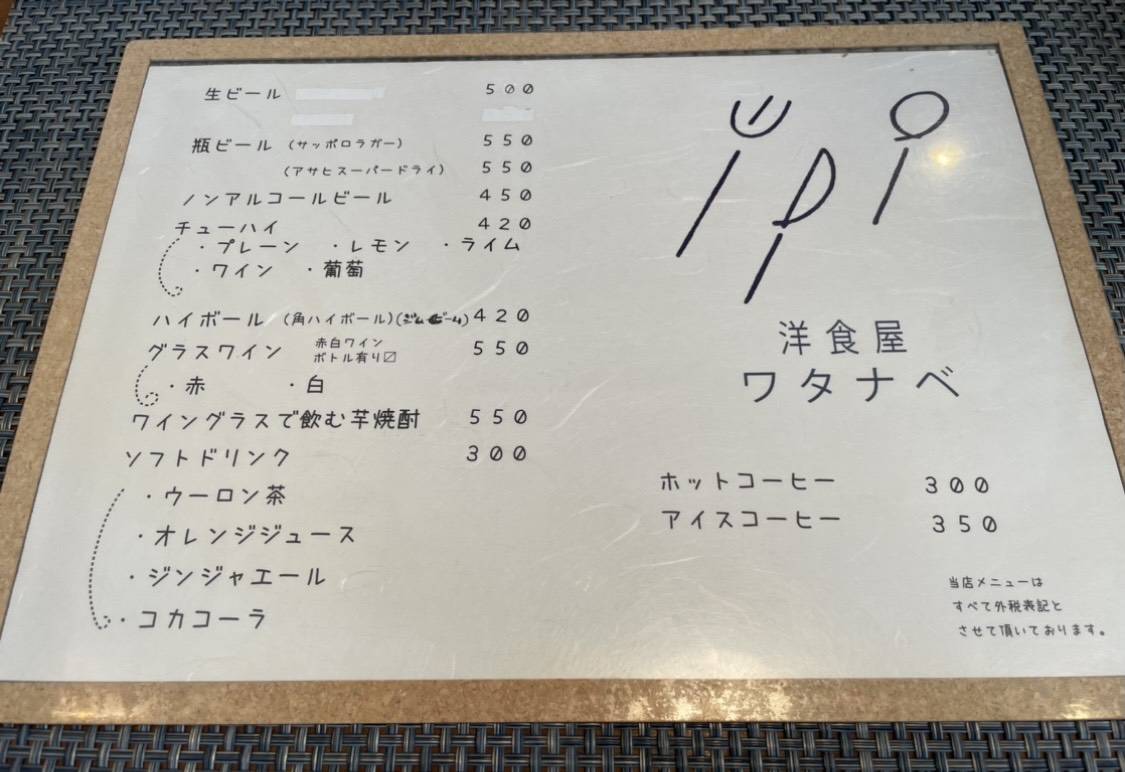 生ビール 500
瓶ビール (サッポロラガー) 550
(アサヒスーパードライ) 550
ノンアルコールビール 450
チューハイ 420
・プレーン ・レモン ・ライム
・ワイン ・葡萄
ハイボール (角ハイボール)(ジムビーム) 420
グラスワイン 赤白ワイン 550
ボトル有り〼
・赤 ・白
ワイングラスで飲む芋焼酎 550
ソフトドリンク 300
・ウーロン茶
・オレンジジュース
・ジンジャエール
・コカコーラ
洋食屋
ワタナベ
ホットコーヒー 300
アイスコーヒー 350
当店メニューは
すべて外税表記と
させて頂いております。